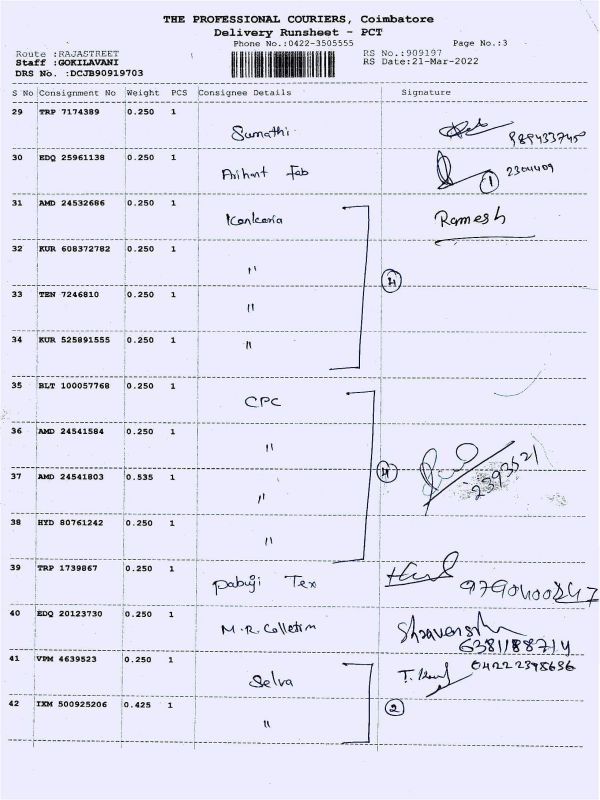 THE PROFESSIONAL COURIERS, Coimbatore
Delivery Runsheet - PCT
Phone No.:0422-3505555
Page No.:3
Route :RAJASTREET
RS No.:909197
Staff :GOKILAVANI
RS Date:21-Mar-2022
DRS No. :DCJB90919703
S No Consignment No Weight PCS Consignee Details Signature
29 TRP 7174389 0.250 1
Sumathi
30 EDQ 25961138 0.250 1
Arihant Fab 1 2304409
31 AMD 24532686 0.250 1
Kankaria Ramesh
32 KUR 608372782 0.250 1
" 4
33 TEN 7246810 0.250 1
"
34 KUR 525891555 0.250 1
"
35 BLT 100057768 0.250 1
CPC
36 AMD 24541584 0.250 1
"
37 AMD 24541803 0.535 1
" 4 2393521
38 HYD 80761242 0.250 1
"
39 TRP 1739867 0.250 1
Pabuji Tex
40 EDQ 20123730 0.250 1
M.R. Colletion
6381188714
41 VPM 4639523 0.250 1
Selva 04222398636
42 IXM 500925206 0.425 1
" 2